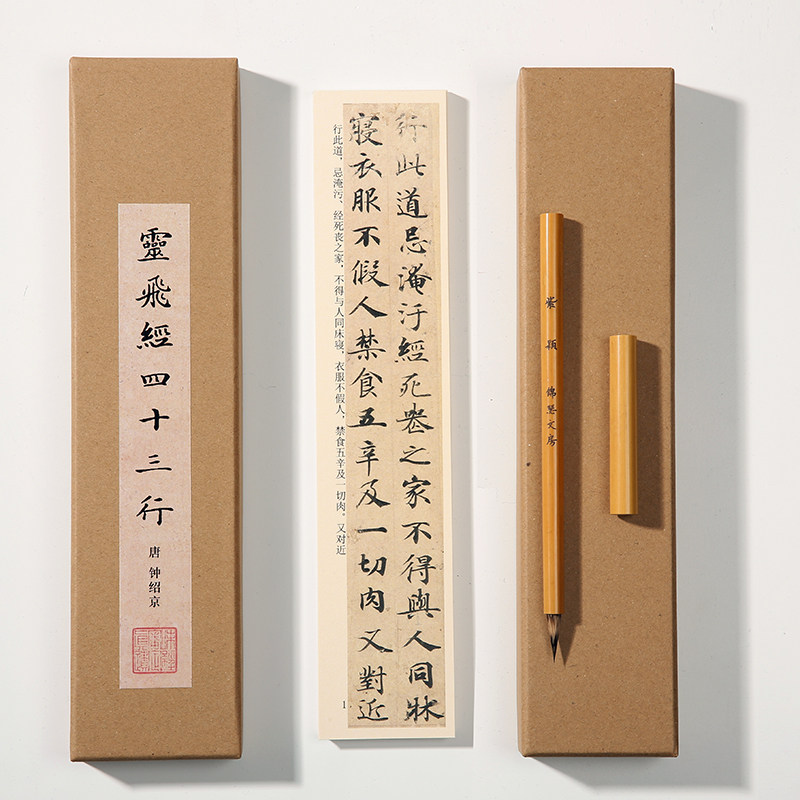 靈飛經四十三行
唐 钟绍京
行此道忌淹汙經死喪之家不得與人同牀
寢衣服不假人禁食五辛及一切肉又對近
行此道，忌淹污、经死丧之家，不得与人同床寝，衣服不假人，禁食五辛及一切肉。又对近
1
紫颖 锦瑟文房